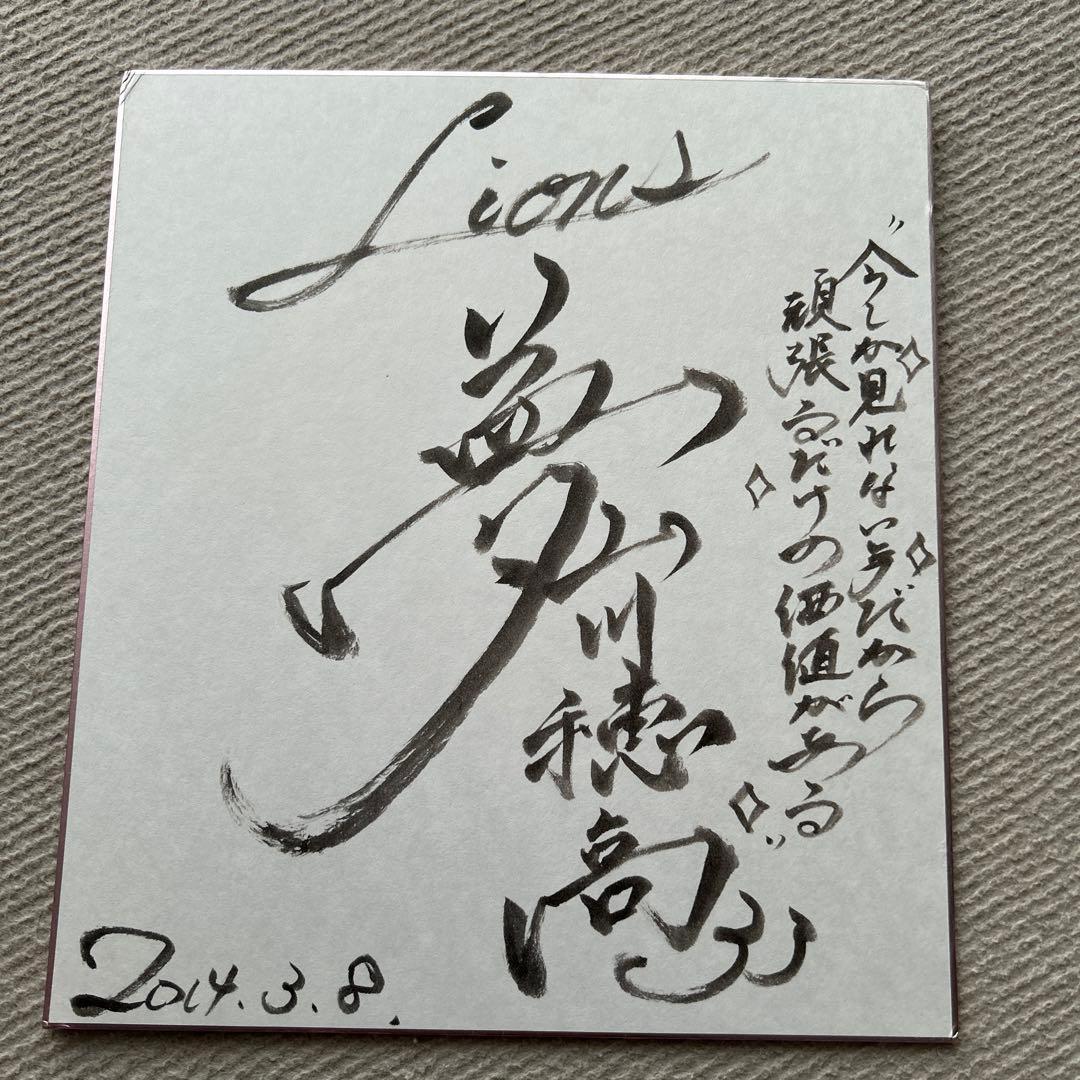 Lions
"今しか見れない夢だから
頑張るだけの価値がある"
夢
山川穂高
33
2014.3.8.